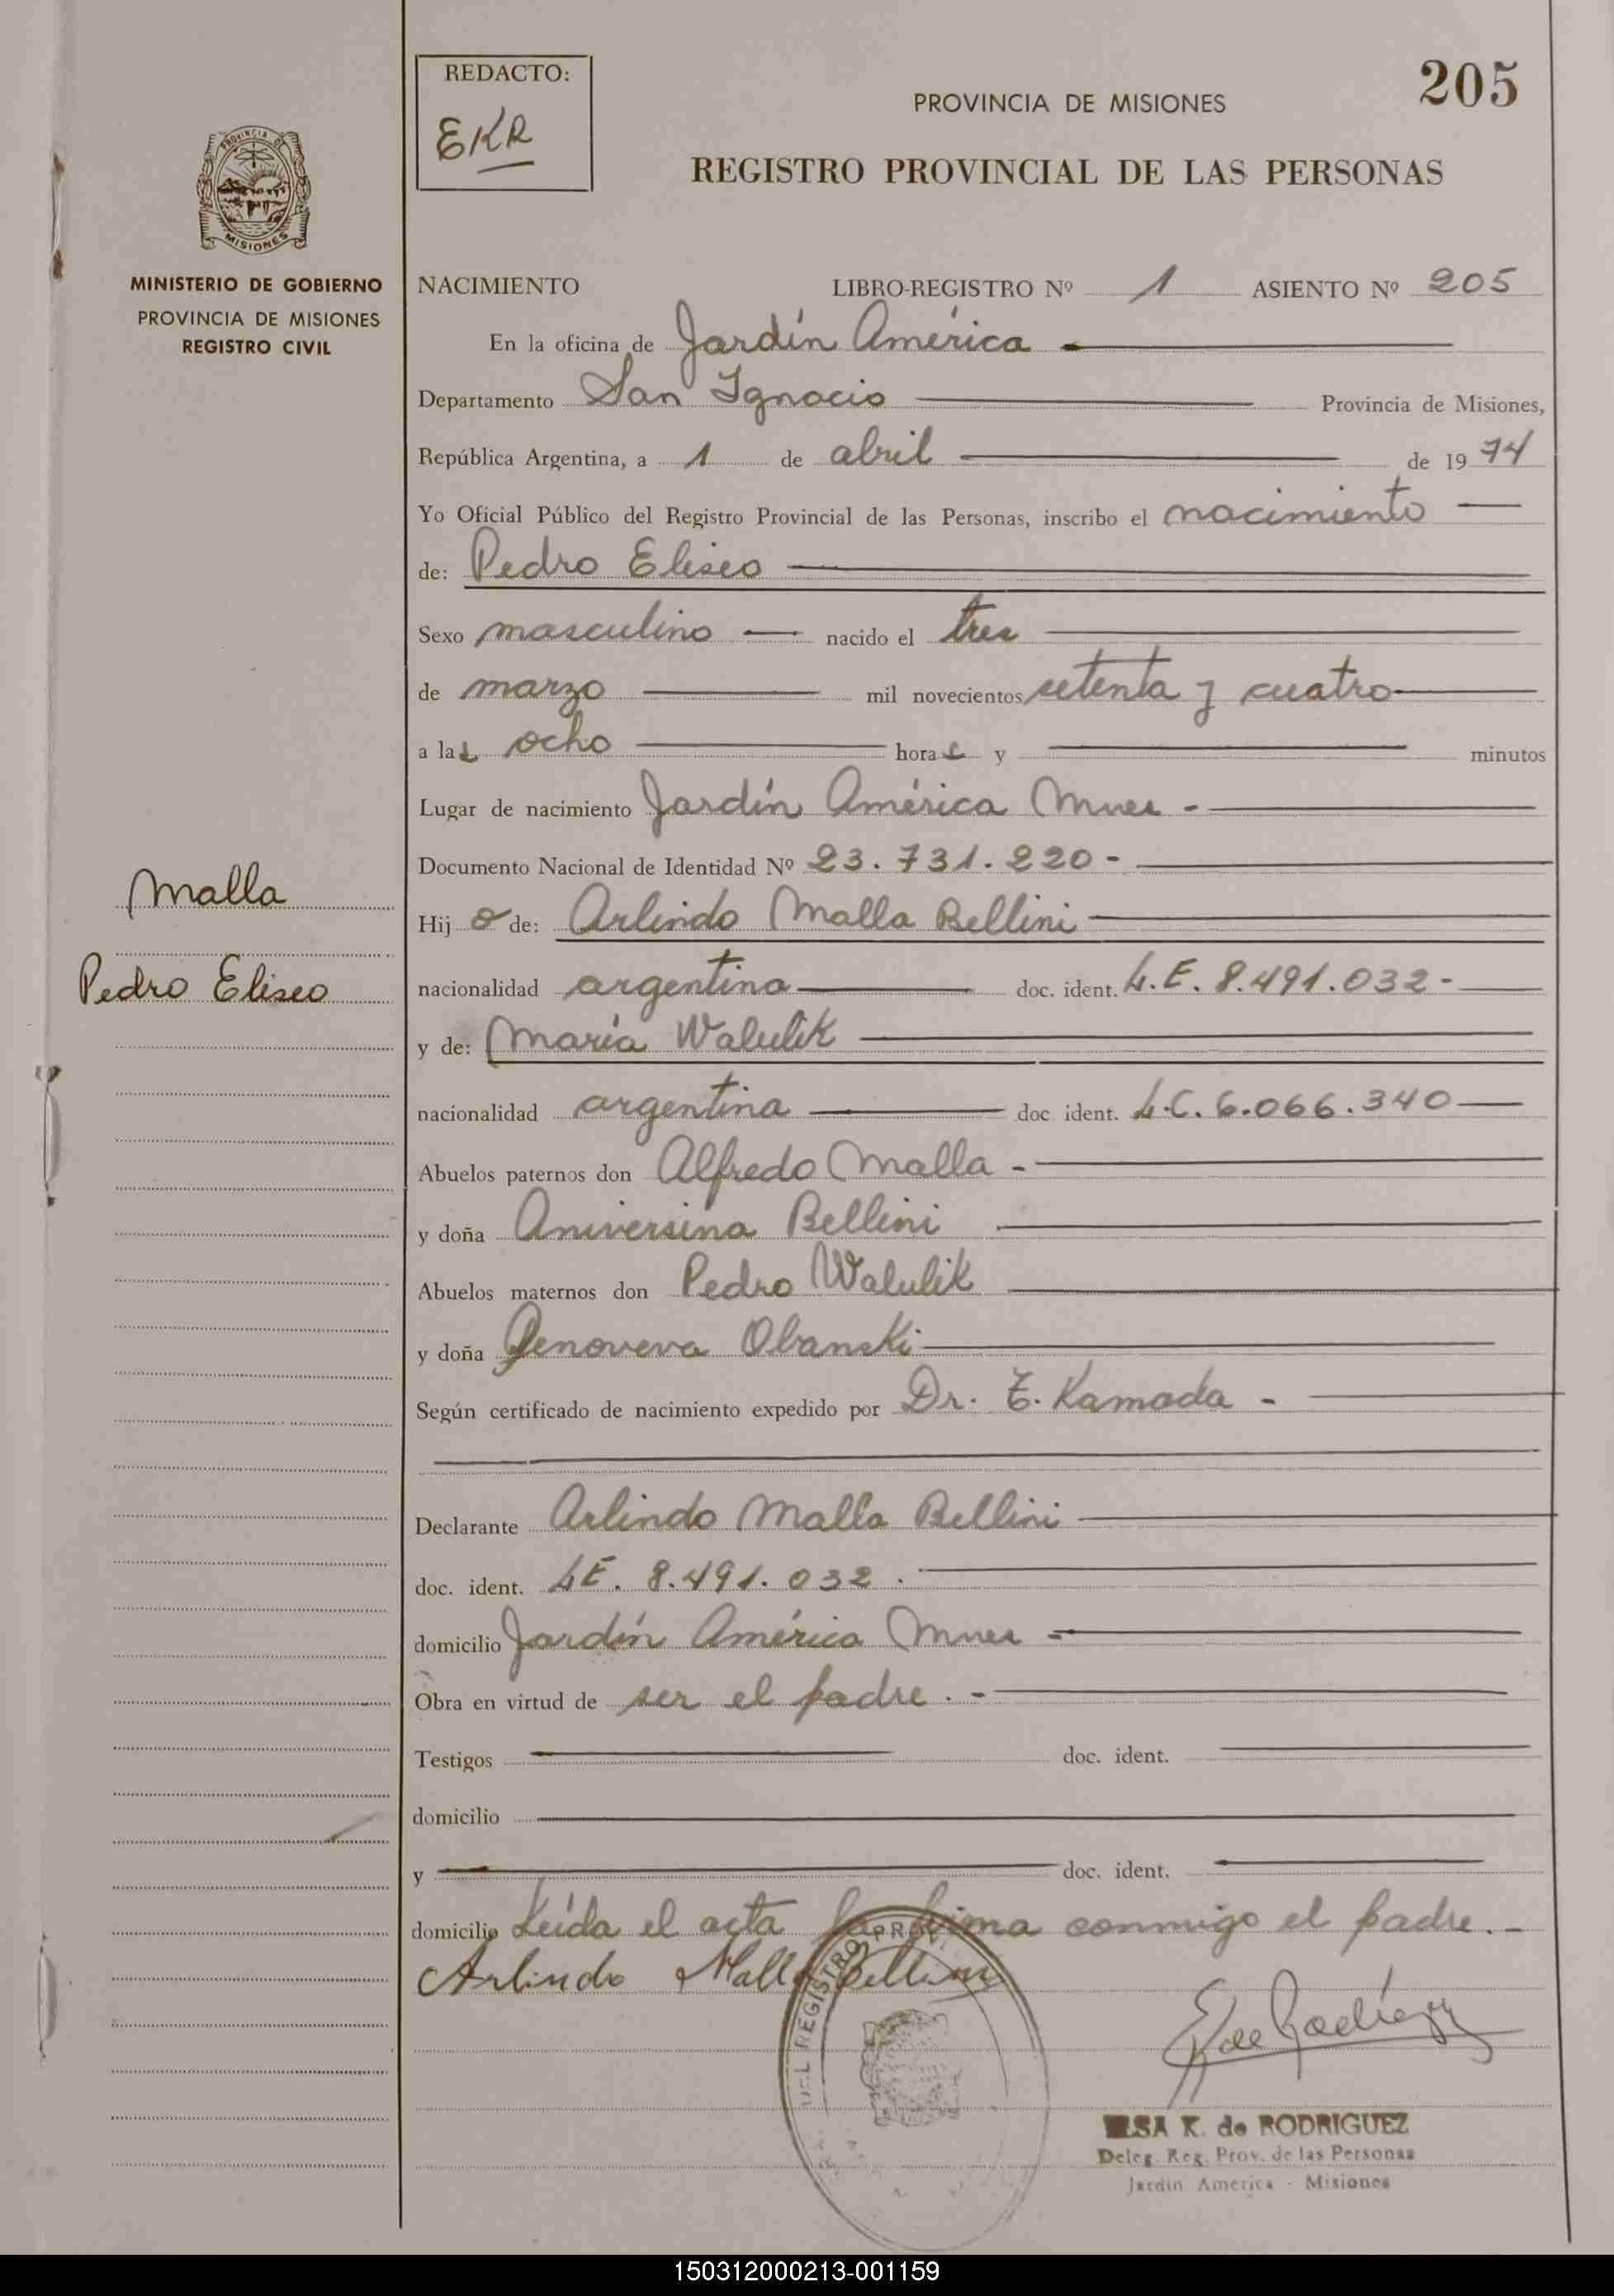 REDACTO:
EKR
PROVINCIA DE MISIONES
205
REGISTRO PROVINCIAL DE LAS PERSONAS
PROVINCIA DE
MISIONES
MINISTERIO DE GOBIERNO
PROVINCIA DE MISIONES
REGISTRO CIVIL
NACIMIENTO LIBRO-REGISTRO Nº 1 ASIENTO Nº 205
En la oficina de Jardín América
Departamento San Ignacio Provincia de Misiones,
República Argentina, a 1 de abril de 1974
Yo Oficial Público del Registro Provincial de las Personas, inscribo el nacimiento
de: Pedro Eliseo
Sexo masculino nacido el tres
de marzo mil novecientos setenta y cuatro
a las ocho horas y minutos
Lugar de nacimiento Jardín América Mnes -
Documento Nacional de Identidad Nº 23.731.220-
Malla
Pedro Eliseo
Hijo de: Arlindo Malla Bellini
nacionalidad argentina doc. ident. L.E. 8.491.032-
y de: María Walulik
nacionalidad argentina doc. ident. L.C. 6.066.340
Abuelos paternos don Alfredo Malla -
y doña Aniversina Bellini
Abuelos maternos don Pedro Walulik
y doña Genoveva Obanski
Según certificado de nacimiento expedido por Dr. E. Kamada -
Declarante Arlindo Malla Bellini
doc. ident. LE. 8.491.032.
domicilio Jardín América Mnes -
Obra en virtud de ser el padre. -
Testigos doc. ident.
domicilio
y doc. ident.
domicilio Leída el acta la firma conmigo el padre. -
Arlindo Malla Bellini
DEL REGISTRO PROV
E K de Rodríguez
ELSA K. de RODRIGUEZ
Deleg. Reg. Prov. de las Personas
Jardín America - Misiones
150312000213-001159